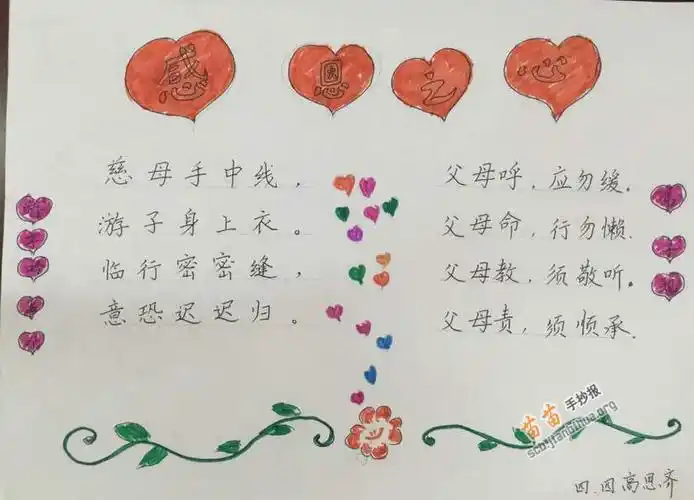 感恩之心
游子吟
慈母手中线，
游子身上衣。
临行密密缝，
意恐迟迟归。
弟子规
父母呼，应勿缓.
父母命，行勿懒.
父母教，须敬听。
父母责，须顺承.
苗苗手抄报
四.四高思齐